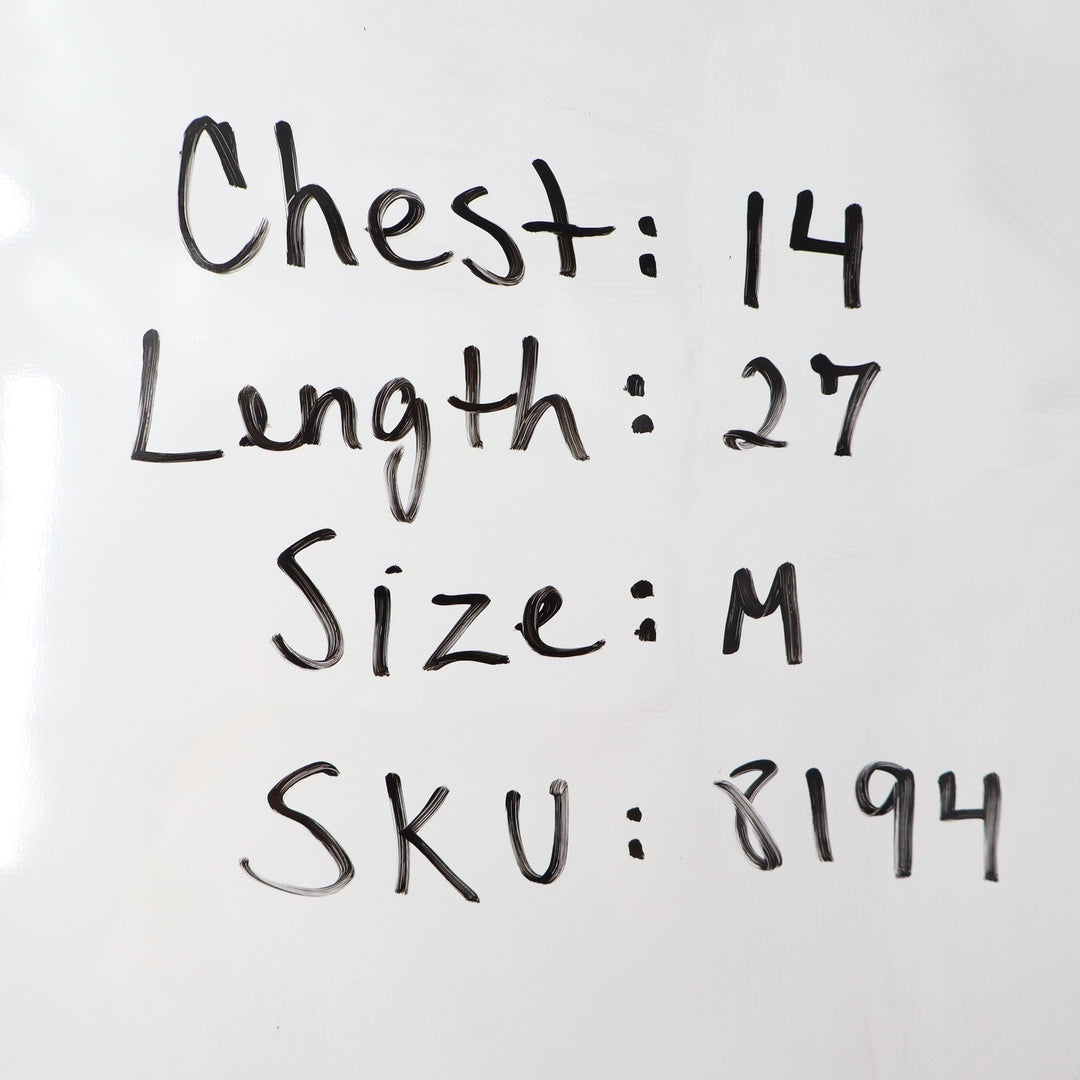 Chest: 14
Length: 27
Size: M
SKU: 8194